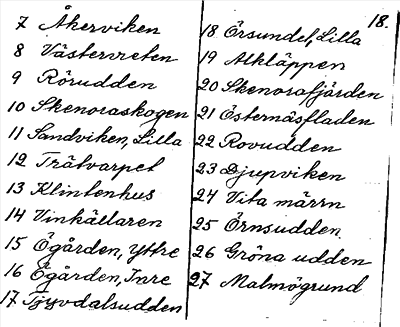 18.
7 Åkerviken
8 Västervreten
9 Rörudden
10 Skenoraskogen
11 Sandviken, Lilla
12 Trätvarpet
13 Klintenhus
14 Vinkällaren
15 Ögården, Yttre
16 Ögården, Inre
17 Tysvdalsudden
18 Örsundet, Lilla
19 Alkläppen
20 Skenorafjärden
21 Östernäsfladen
22 Rovudden
23 Djupviken
24 Vita märrn
25 Örnsudden
26 Gröna udden
27 Malmögrund